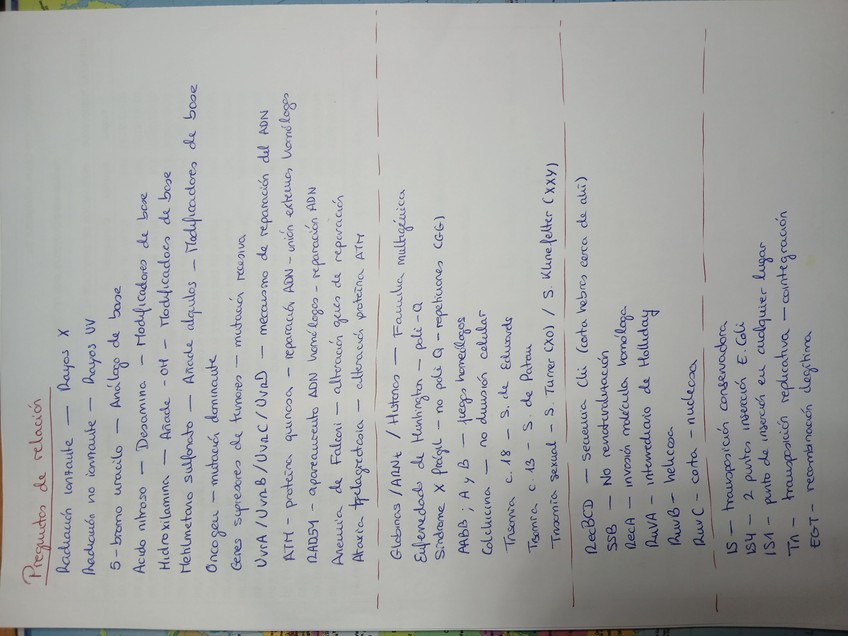 Preguntas de relación
Radiación ionizante — Rayos X
Radiación no ionizante — Rayos UV
5-bromo uracilo — Análogo de base
Ácido nitroso — Desamina — Modificadores de base
Hidroxilamina — Añade -OH — Modificadores de base
Metilmetano sulfonato — Añade alquilos — Modificadores de base
Oncogen — mutación dominante
Genes supresores de tumores — mutación recesiva
UvrA / UvrB / UvrC / UvrD — mecanismo de reparación del ADN
ATM - proteína quinasa - reparación ADN - unión extremos homólogos
RAD51 - apareamiento ADN homólogos - reparación ADN
Anemia de Falconi — alteración genes de reparación
Ataxia telagiectasia — alteración proteína ATM
Globinas / ARNt / Histonas — Familia multigénica
Enfermedad de Huntington — poli-Q
Síndrome X Frágil - no poli Q - repeticiones CGG
AABB ; A y B — juegos homeólogos
Colchicina — no división celular
Trisomía c. 18 — S. de Edwards
Trisomía c. 13 - S. de Patau
Trisomía sexual - S. Turner (X0) / S. Klinefelter (XXY)
RecBCD — Secuencia Chi (corta hebras cerca de ahí)
SSB — No renaturalización
RecA — invasión molécula homóloga
RuvA - intermediario de Holliday
RuvB - helicasa
RuvC - corta - nucleasa
IS — transposición conservadora
IS4 — 2 puntos inserción E. Coli
IS1 - punto de inserción en cualquier lugar
Tn - transposición replicativa — cointegración
EGT - recombinación ilegítima